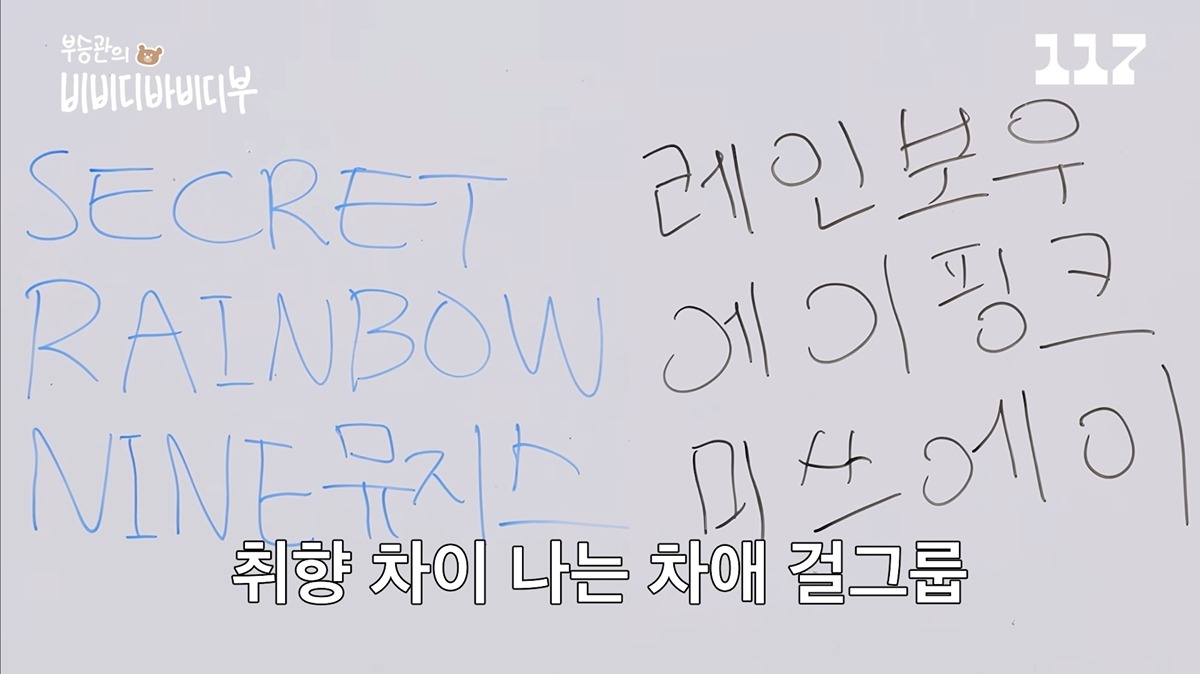 부승관의
비비디바비디부
117
SECRET
RAINBOW
NINE뮤지스
레인보우
에이핑크
미쓰에이
취향 차이 나는 차애 걸그룹